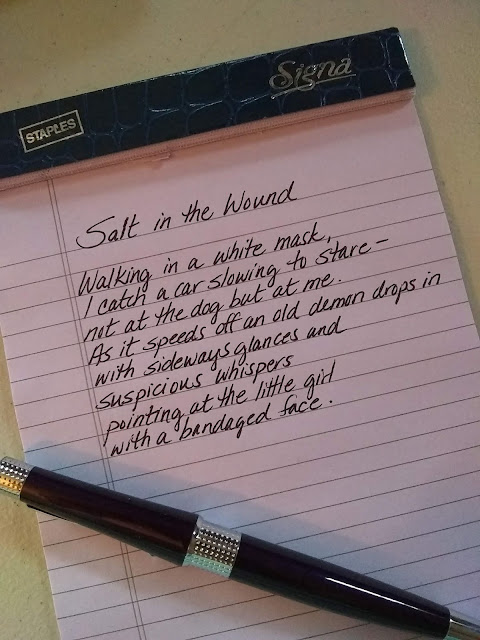 STAPLES
Signa
Salt in the Wound
Walking in a white mask,
I catch a car slowing to stare –
not at the dog but at me.
As it speeds off an old demon drops in
with sideways glances and
suspicious whispers
pointing at the little girl
with a bandaged face.